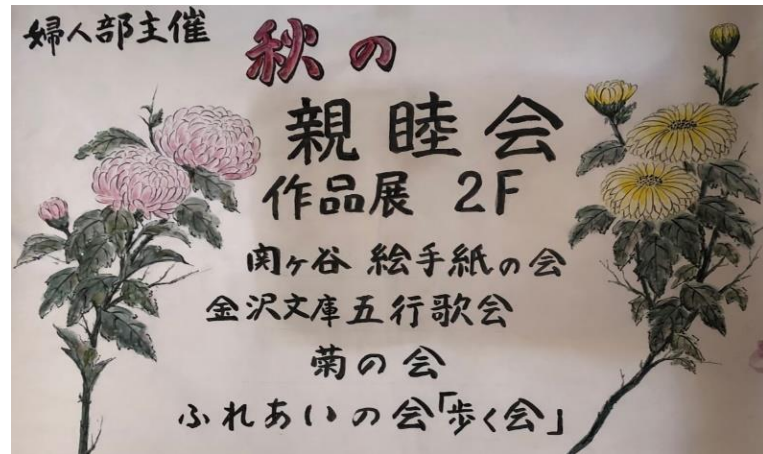 婦人部主催
秋の
親睦会
作品展 2F
関ヶ谷 絵手紙の会
金沢文庫五行歌会
菊の会
ふれあいの会「歩く会」